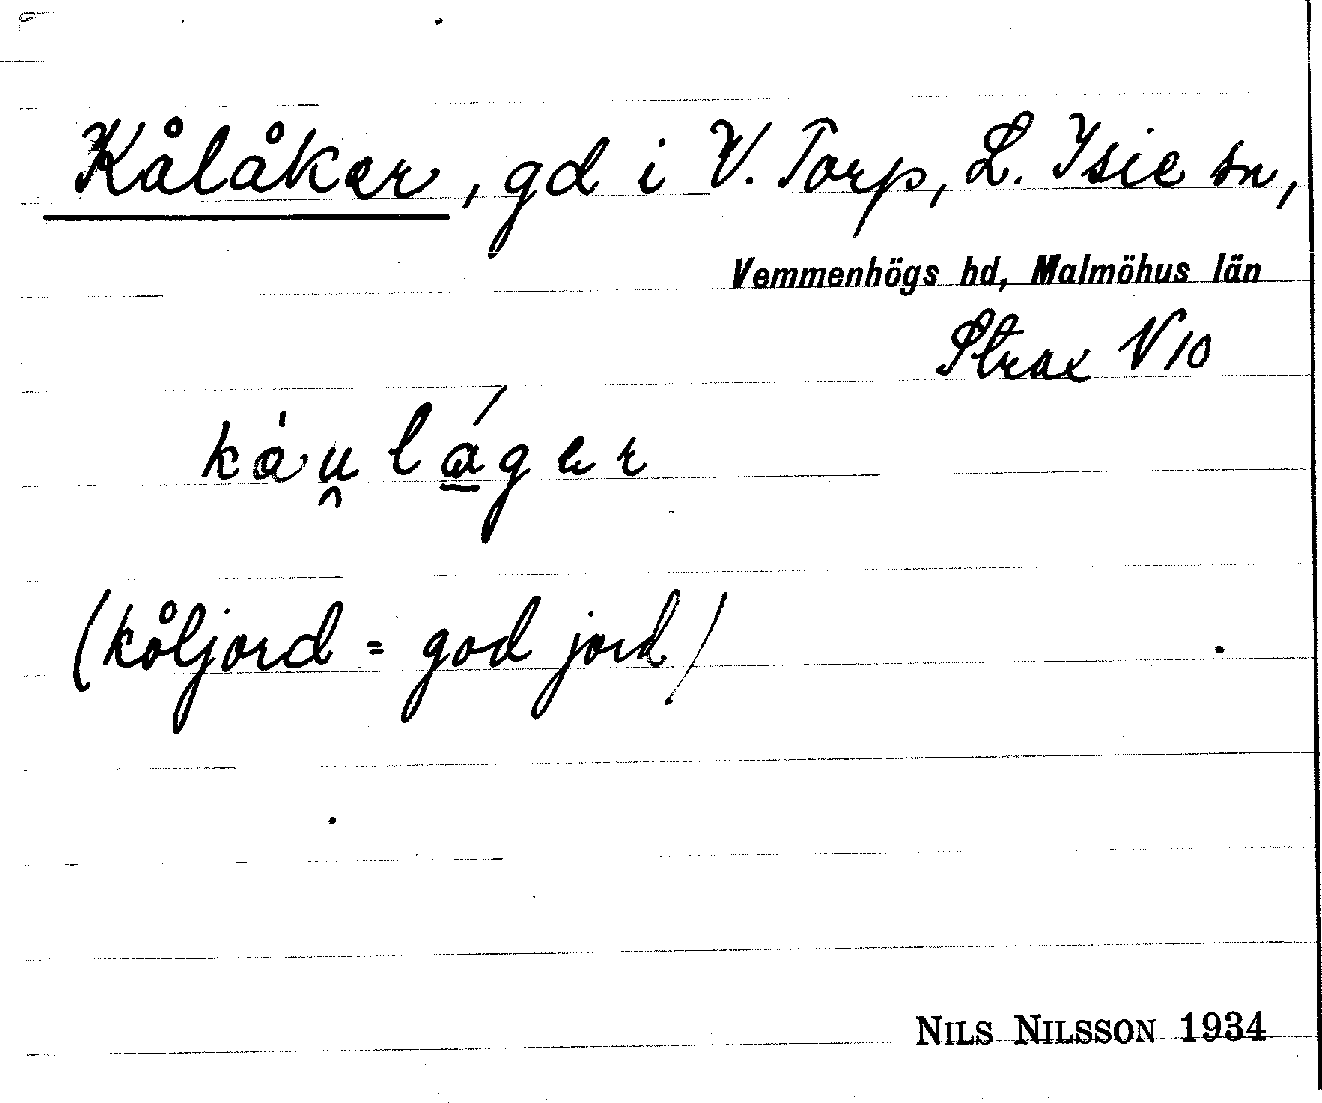 Kålåker, gd i V. Torp, L. Isie sn,
Vemmenhögs hd, Malmöhus län
Strax V 10
kȧu̯lá̱ger
(kåljord = god jord)
NILS NILSSON 1934